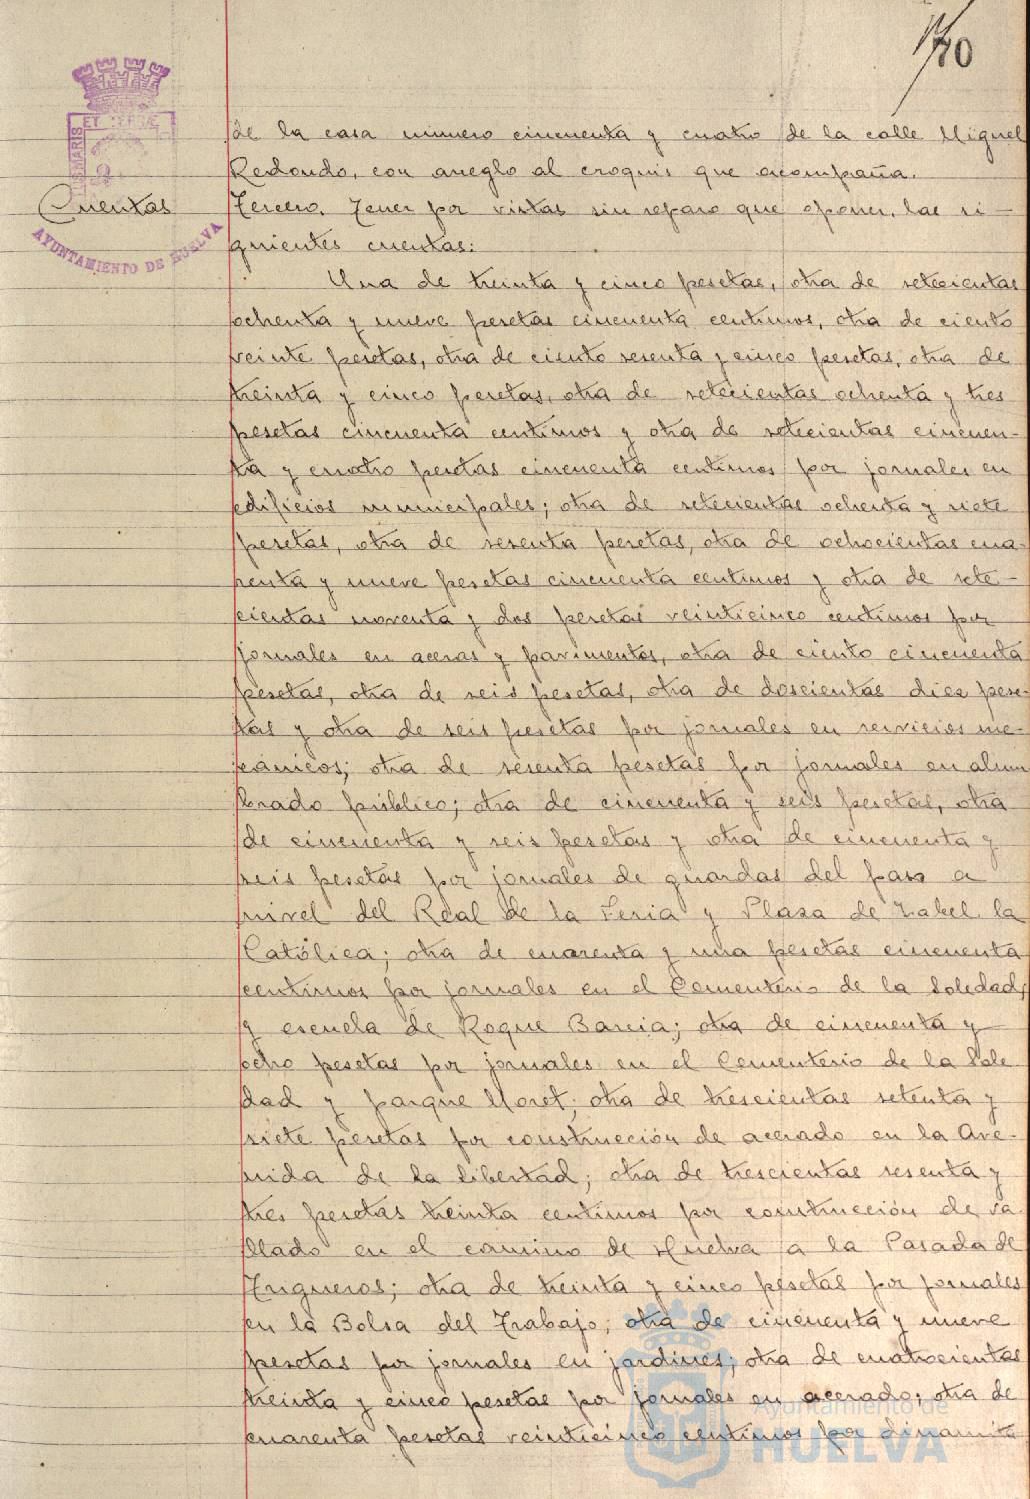 70
ET TERRÆ
MARIS
AYUNTAMIENTO DE HUELVA
de la casa número cincuenta y cuatro de la calle Miguel
Redondo, con arreglo al croquis que acompaña.
Cuentas
Tercero. Tener por vistas sin reparo que oponer, las si-
guientes cuentas:
Una de treinta y cinco pesetas, otra de setecientas
ochenta y nueve pesetas cincuenta centimos, otra de ciento
veinte pesetas, otra de ciento sesenta y cinco pesetas, otra de
treinta y cinco pesetas, otra de setecientas ochenta y tres
pesetas cincuenta centimos y otra de setecientas cincuen-
ta y cuatro pesetas cincuenta centimos por jornales en
edificios municipales; otra de setecientas ochenta y siete
pesetas, otra de sesenta pesetas, otra de ochocientas cua-
renta y nueve pesetas cincuenta centimos y otra de sete-
cientas noventa y dos pesetas veinticinco centimos por
jornales en aceras y pavimentos, otra de ciento cincuenta
pesetas, otra de seis pesetas, otra de doscientas diez pese-
tas y otra de seis pesetas por jornales en servicios me-
cánicos; otra de sesenta pesetas por jornales en alum
brado público; otra de cincuenta y seis pesetas, otra
de cincuenta y seis pesetas y otra de cincuenta y
seis pesetas por jornales de guardas del paso a
nivel del Real de la Feria y Plaza de Isabel la
Católica; otra de cuarenta y una pesetas cincuenta
centimos por jornales en el Cementerio de la Soledad,
y escuela de Roque Barcia; otra de cincuenta y
ocho pesetas por jornales en el Cementerio de la Sole
dad y parque Moret; otra de trescientas setenta y
siete pesetas por construcción de acerado en la Ave-
nida de la Libertad; otra de trescientas sesenta y
tres pesetas treinta centimos por construcción de va
llado en el camino de Huelva a la Pasada de
Trigueros; otra de treinta y cinco pesetas por jornales
en la Bolsa del Trabajo; otra de cincuenta y nueve
pesetas por jornales en jardines; otra de cuatrocientas
treinta y cinco pesetas por jornales en acerado; otra de
cuarenta pesetas veinticinco centimos por dinamita
Ayuntamiento de
HUELVA